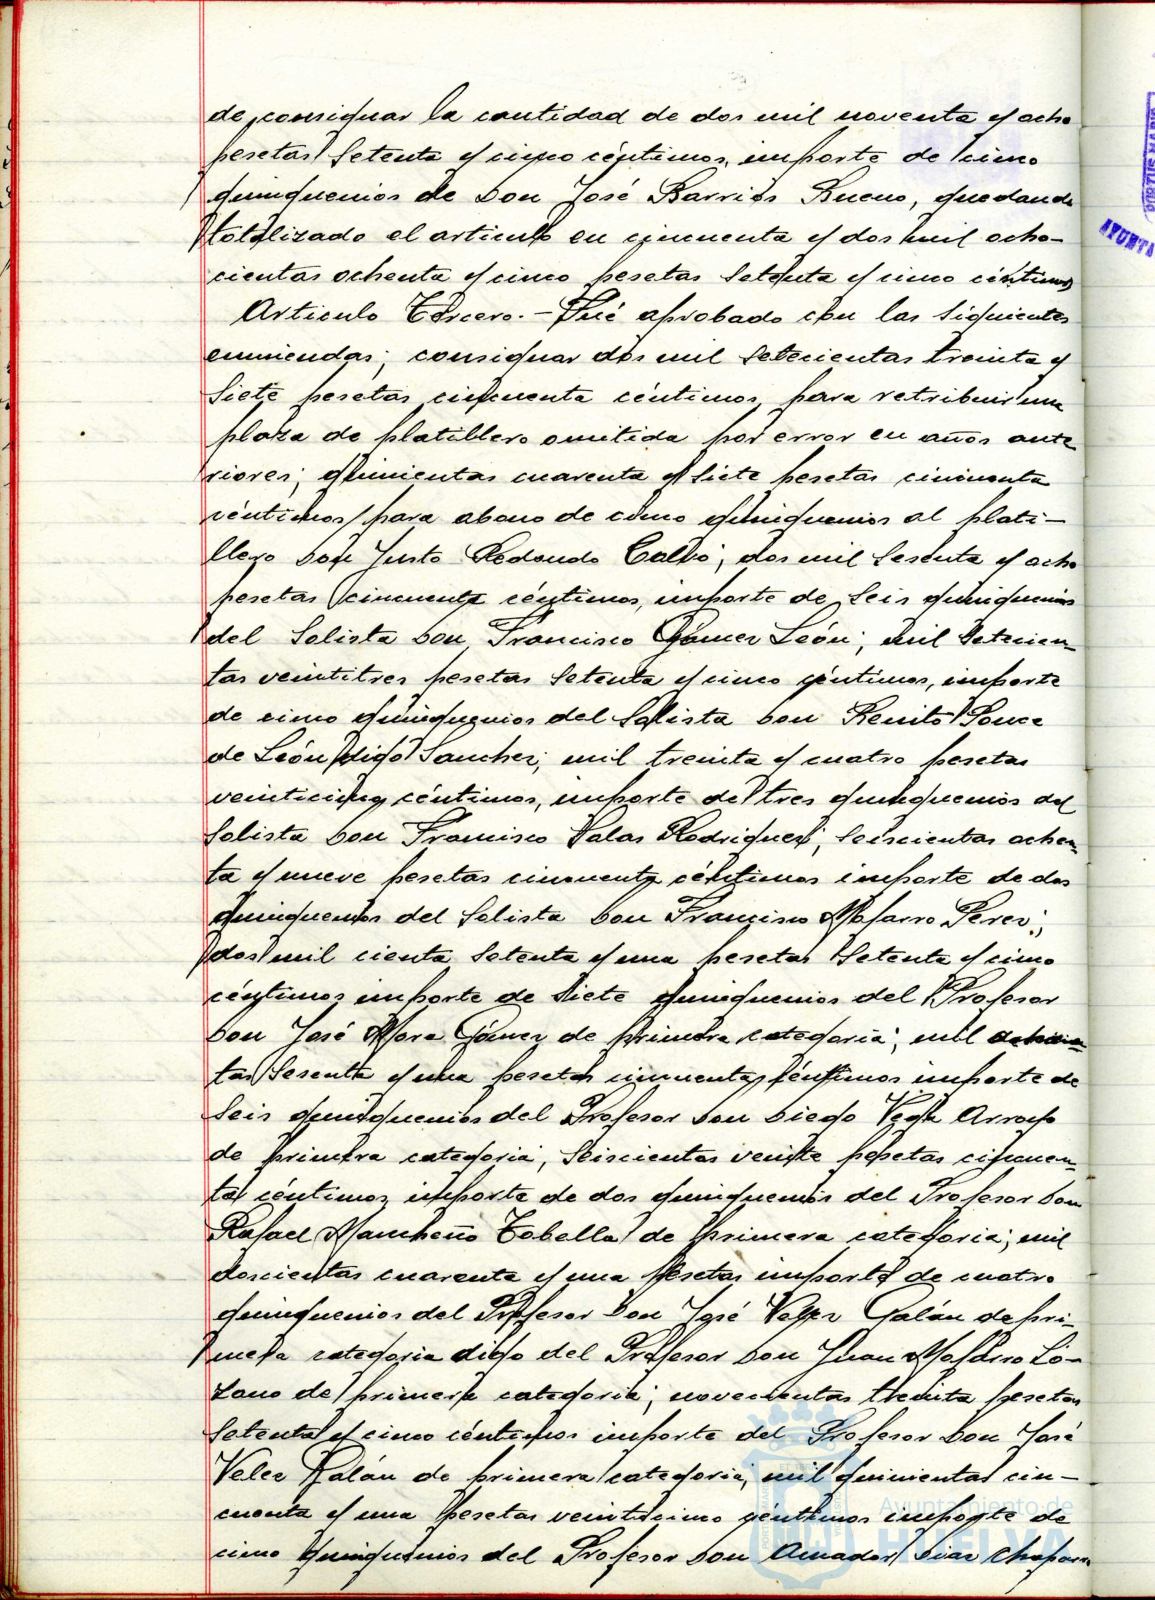 de consignar la cantidad de dos mil noventa y ocho
pesetas setenta y cinco céntimos, importe de cinco
quinquenios de Don José Barrios Bueno, quedando
totalizado el articulo en cincuenta y dos mil ocho-
cientas ochenta y cinco pesetas setenta y cinco céntimos
Articulo Tercero.- Fué aprobado con las siguientes
enmiendas; consignar dos mil setecientas treinta y
siete pesetas cincuenta céntimos, para retribuir una
plaza de platillero omitida por error en años ante
riores; quinientas cuarenta y siete pesetas cincuenta
céntimos para abono de cinco quinquenios al plati-
llero Don Justo Redondo Calvo; dos mil sesenta y ocho
pesetas cincuenta céntimos, importe de seis quinquenios
del Solista Don Francisco Gómez León; mil setecien-
tas veintitres pesetas setenta y cinco céntimos, importe
de cinco quinquenios del Solista Don Benito Ponce
de León digo Sanchez; mil treinta y cuatro pesetas
veinticinco céntimos, importe de tres quinquenios del
Solista Don Francisco Salas Rodriguez; seiscientas ochen-
ta y nueve pesetas cincuenta céntimos importe de dos
quinquenios del Solista Don Francisco Mofarro Perez;
dos mil cienta setenta y una pesetas setenta y cinco
céntimos importe de siete quinquenios del Profesor
Don José Mora Gómez de primera categoria; mil
tas sesenta y una pesetas cincuenta céntimos importe de
seis quinquenios del Profesor Don Diego Vega Arroyo
de primera categoria, seiscientas veinte pesetas cincuen-
ta céntimos importe de dos quinquenios del Profesor Don
Rafael Mancheño Tobella de primera categoria; mil
doscientas cuarenta y una pesetas importe de cuatro
quinquenios del Profesor Don José Velez Galán de pri-
mera categoria digo del Profesor Don Juan Mofarro Lo-
zano de primera categoria; novecientas treinta pesetas
setenta y cinco céntimos importe del Profesor Don José
Velez Galán de primera categoria; mil quinientas cin-
cuenta y una pesetas veinticinco céntimos importe de
cinco quinquenios del Profesor Don Amador Diaz Chaparro
Ayuntamiento de
HUELVA